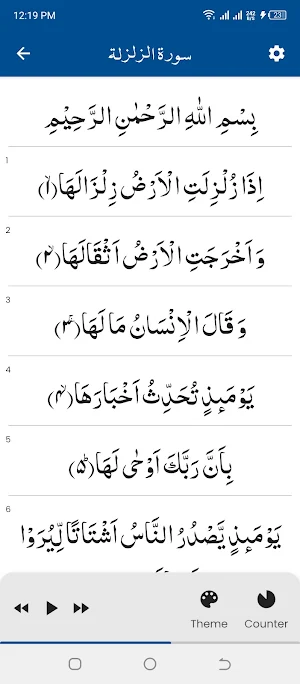 12:19 PM
242 B/S
23
سورة الزلزلة
بِسْمِ اللهِ الرَّحْمٰنِ الرَّحِيْمِ
1
اِذَا زُلْزِلَتِ الْاَرْضُ زِلْزَالَهَا ﴿۱﴾
2
وَ اَخْرَجَتِ الْاَرْضُ اَثْقَالَهَا ﴿۲﴾
3
وَ قَالَ الْاِنْسَانُ مَا لَهَا ﴿۳﴾
4
يَوْمَىِٕذٍ تُحَدِّثُ اَخْبَارَهَا ﴿۴﴾
5
بِاَنَّ رَبَّكَ اَوْحٰى لَهَا ﴿۵﴾
6
يَوْمَىِٕذٍ يَّصْدُرُ النَّاسُ اَشْتَاتًا لِّيُرَوْا
Theme
Counter